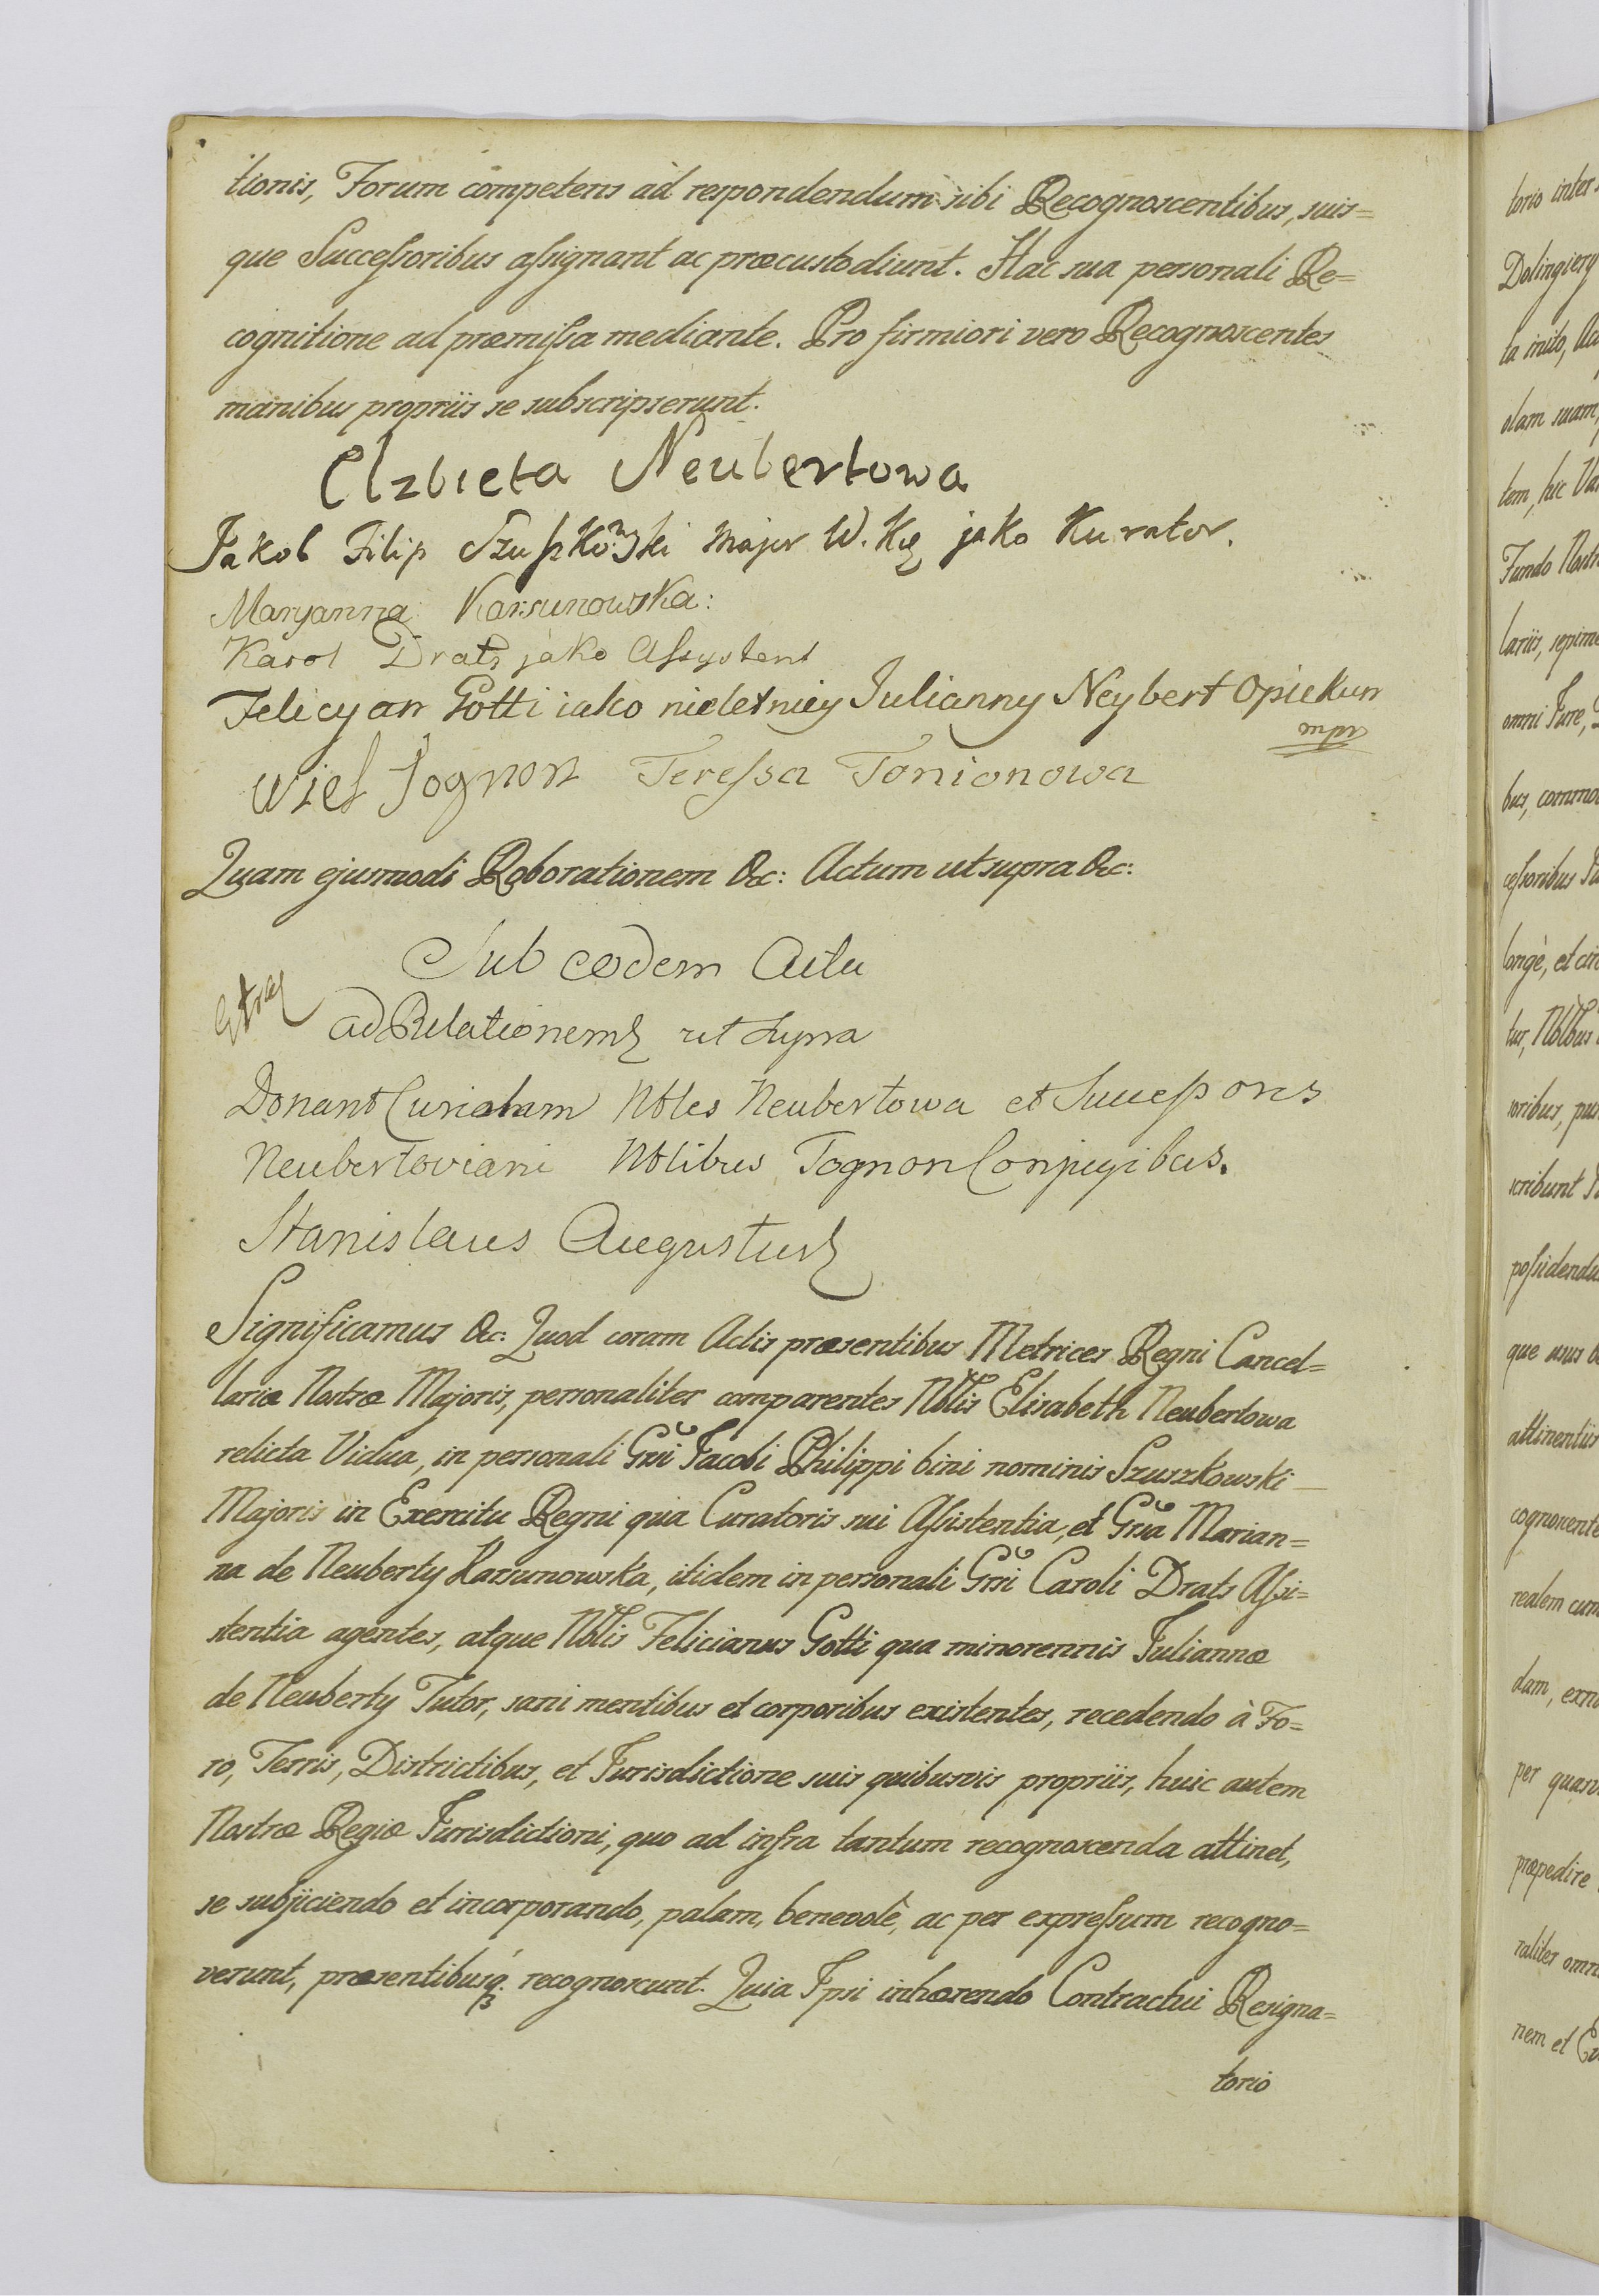 tionis, Forum competens ad respondendum sibi Recognoscentibus, suis=
que Successoribus assignant ac præcustodiunt. Hac sua personali Re=
cognitione ad præmissa mediante. Pro firmiori vero Recognoscentes
manibus propriis se subscripserunt.
Elzbieta Neubertowa
Jakob Filip Szuszkowski Major W. Kę jako Kurator.
Maryanna Karsunowska:
Karol Drats jako Assystent
Felicyan Gotti iako nieletniey Julianny Neybert Opiekun
mpr
Tognon Teressa Tonionowa
Quam ejusmodi Roborationem &c: Actum ut supra &c:
Sub eodem Actu
Extra
ad Relationem ut Supra
Donant Curialem Nbles Neubertowa et Successores
Neubertoviani Nblibus Tognon Conjugibus.
Stanislaus Augustus
Significamus &c: Quod coram Actis præsentibus Metrices Regni Cancel=
lariæ Nostræ Majoris, personaliter comparentes Nblis Elisabeth Neubertowa
relicta Vidua, in personali Gnsi Jacobi Philippi bini nominis Szuszkowski
Majoris in Exercitu Regni qua Curatoris sui Assistentia, et Gnsa Marian=
na de Neuberty Karsunowska, itidem in personali Gnsi Caroli Drats Assi=
stentia agentes, atque Nblis Felicianus Gotti qua minorennis Juliannæ
de Neuberty Tutor, sani mentibus et corporibus existentes, recedendo à Fo=
ro, Terris, Districtibus, et Jurisdictione suis quibusvis propriis, huic autem
Nostræ Regiæ Jurisdictioni, quo ad infra tantum recognoscenda attinet,
se subjiciendo et incorporando, palam, benevolè, ac per expressum recogno=
verunt, præsentibusq; recognoscunt. Quia Ipsi inhærendo Contractui Resigna=
torio